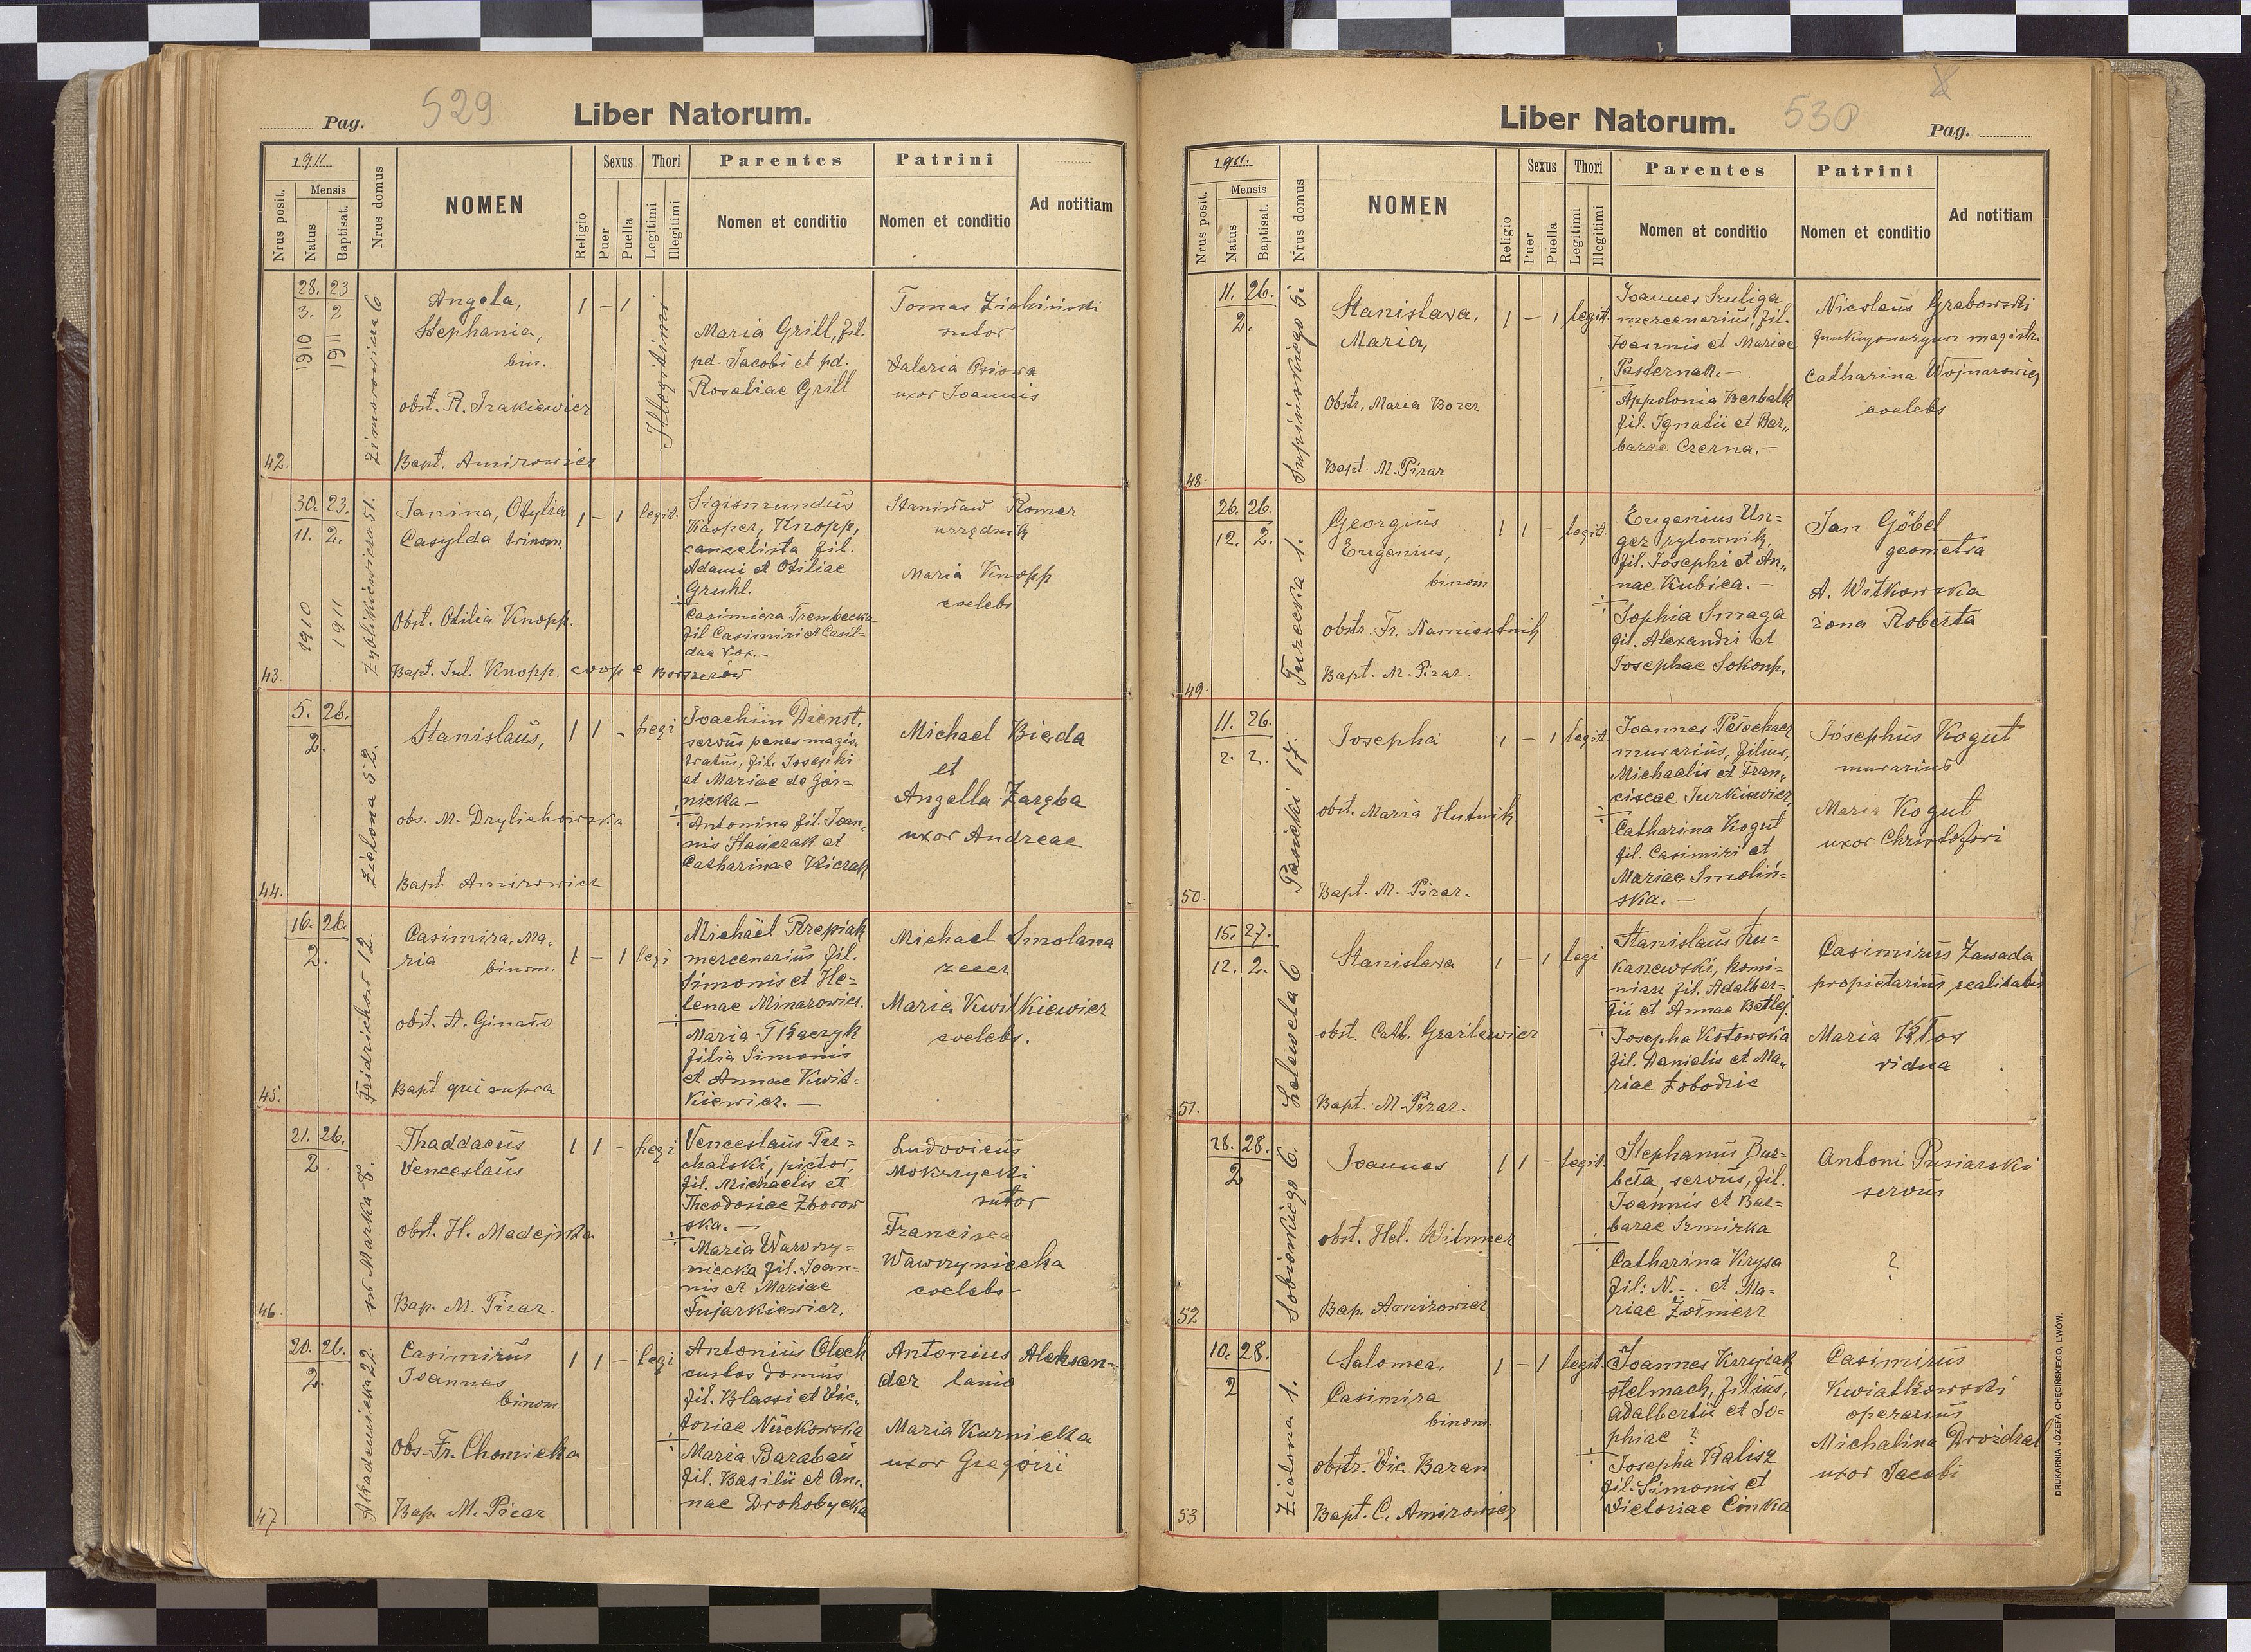 Pag. 529 Liber Natorum.
1911 Mensis Sexus Thori Parentes Patrini
Nrus posit. Natus Baptisat. Nrus domus NOMEN Religio Puer Puella Legitimi Illegitimi Nomen et conditio Nomen et conditio Ad notitiam
42. 28. 23
3. 2
1910 1911
Zimorowicza 6
Angela,
Stephania,
bin.
obst. R. Izakiewicz
Bapt. Amirowicz
1 – 1
Illegitimi
Maria Grill, fil.
pd. Jacobi et pd.
Rosaliae Grill
Tomas Zieliński
sutor
Valeria Osiowa
uxor Joannis
43. 30. 23.
11. 2.
1910 1911
Zyblikiewicza 51.
Janina, Otylia
Casylda trinom.
Obst. Otilia Knopp.
Bapt. Jul. Knopp. coop e Borszczów
1 – 1 legit.
Sigismundus
Kasper, Knopp,
cancelista fil.
Adami et Otiliae
Gruhl.
Casimira Trembecka
fil Casimiri et Casil-
dae Vox.-
Stanisław Romer
urzędnik
Maria Knopp
coelebs
44. 5. 26.
2.
Zielona 52.
Stanislaus,
obs. M. Drylichowska
Bapt. Amirowicz
1 1 – legi
Joachim Dienst,
servus penes magis-
tratus, fil. Josephi
et Mariae de Gór=
nicka –
Antonina fil. Joan-
nis Stańczak et
Catharinae Kiczak
Michael Bieda
et
Angella Zaręba
uxor Andreae
45. 16. 26.
2.
Fridrichów 12.
Casimira, Ma-
ria binom.
obst. A. Ginało
Bapt qui supra
1 – 1 legi
Michaël Rzepiak
mercenarius fil.
Simonis et He-
lenae Minarowicz.
Maria Tkaczyk
filia Simonis
et Annae Kwit-
kiewicz. —
Michael Smolana
zecer
Maria Kwitkiewicz
coelebs.
46. 21. 26.
2.
św Marka 8.
Thaddaeus
Venceslaus
obst. H. Madejska
Bap. M. Pizar.
1 1 – legi
Venceslaus Pu=
chalski, pictor,
fil. Michaelis et
Theodosiae Zborow
ska. –
Maria Wawrzy=
niecka fil. Joan-
nis et Mariae
Fujarkiewicz.
Ludovicus
Mokrzycki
sutor
Francisca
Wawryniecka
coelebs –
47 20. 26.
2.
Akademicka 22.
Casimirus
Joannes
binom.
Obs. Fr. Chomicka
Bap. M. Pizar
1 1 – legi
Antonius Olech
custos domus
fil. Blassi et Vic-
toriae Nućkowska
Maria Barabań
fil. Basilii et An-
nae Drohobycka
Antonius Aleksan-
der lanio
Maria Kurnicka
uxor Gregoiri
Liber Natorum. 530 Pag.
1911. Mensis Sexus Thori Parentes Patrini
Nrus posit. Natus Baptisat. Nrus domus NOMEN Religio Puer Puella Legitimi Illegitimi Nomen et conditio Nomen et conditio Ad notitiam
48. 11. 26.
2.
Supińskiego 5.
Stanislava,
Maria,
Obstr. Maria Bozer
Bapt. M. Pizar
1 – 1 legit.
Joannes Szuliga
mercenarius, fil.
Joannis et Mariae
Pasternak. –
Appolonia Berbalk
fil. Ignatii et Bar-
barae Czerna. –
Nicolaus Grabowski
funkcyonaryusz magistr.
Catharina Wojnarowicz
coelebs
49. 26. 26.
12. 2.
Turecka 1.
Georgius
Eugenius,
binom
obstr. Fr. Namiestnik
Bapt. M. Pizar.
1 1 – legit.
Eugenius Un=
ger rytownik,
fil. Josephi et An-
nae Kubica. –
Sophia Smaga
fil. Alexandri et
Josephae Sokonh.
Jan Göbel
geometra
A. Witkowska
żona Roberta
50. 11. 26.
2. 2.
Pasieki 17.
Josepha
obst. Maria Hutnik
Bapt. M. Pizar.
1 – 1 legit
murarius, filius,
Michaelis et Fran-
ciscae Jurkiewicz,
Catharina Kogut
fil. Casimiri et
Mariae Smoliń-
ska. –
Josephus Kogut
murarius
Maria Kogut
uxor Christofori
51. 15. 27.
12. 2.
Lelewela 6
Stanislava
obst. Cath. Grazlewicz
Bapt. M. Pizar.
1 – 1 legi
Stanislaus Łu=
kaszewski, komi=
niarz fil. Adalber=
tii et Annae Betlej
Josepha Kotowska
fil. Danielis et Ma-
riae Łobodzic
Casimirus Zawada
propietarius realitatis
Maria Kłos
vidua
52 28. 28.
2
Sobieskiego 6.
Joannes
obst. Hel. Witmer
Bap. Amirowicz
1 1 – legit.
Stephanus Bur=
beła, servus, fil.
Joannis et Bar=
barae Szmirka
Catharina Krysa
fil: N... et Ma=
riae Żołnierz
Antoni Pusiarski
servus
?
53 10. 28.
2
Zielona 1.
Salomea,
Casimira
binom
obstr. Vic. Baran
Bapt. C. Amirowicz
1 – 1 legit.
Joannes Krzysiak
stelmach, filius,
Adalbertii et So=
phiae ?
Josepha Kalisz
fil. Simonis et
Victoriae Cinka
Casimirus
Kwiatkowski
operarius
Michalina Drożdzal
uxor Jacobi
DRUKARNIA JÓZEFA CHĘCIŃSKIEGO, LWÓW.